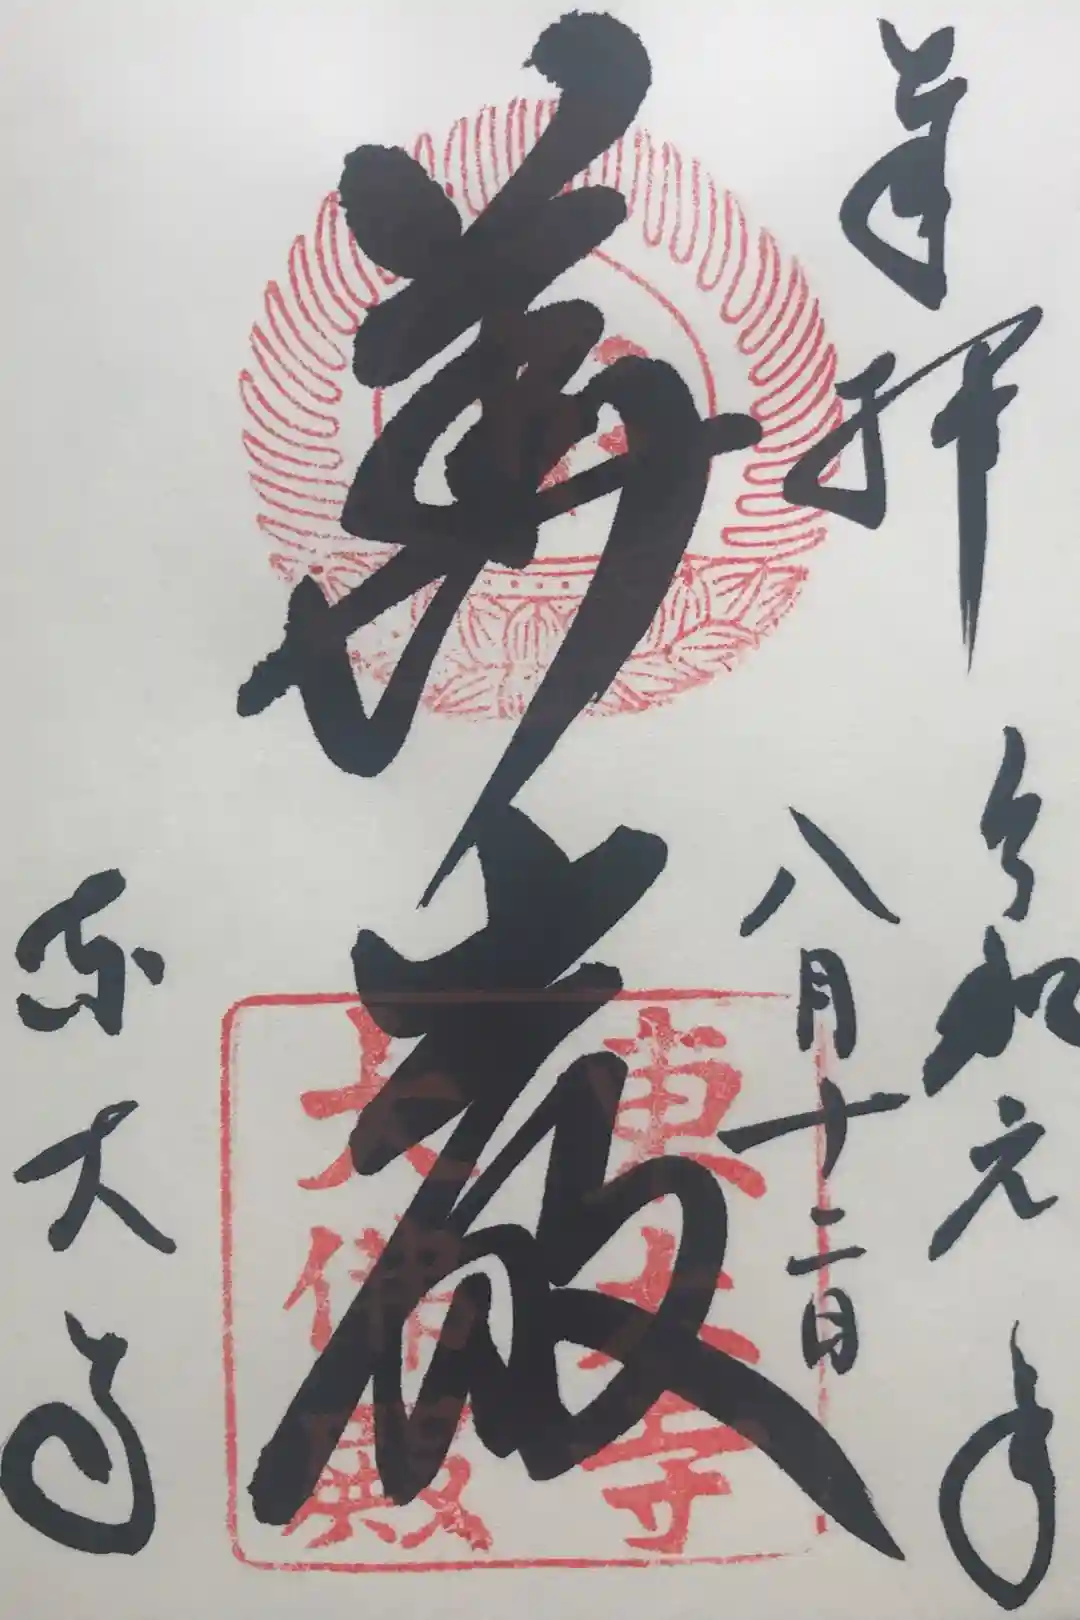 奉拝
令和元年
八月十二日
華厳
東大寺
大佛殿
東大寺